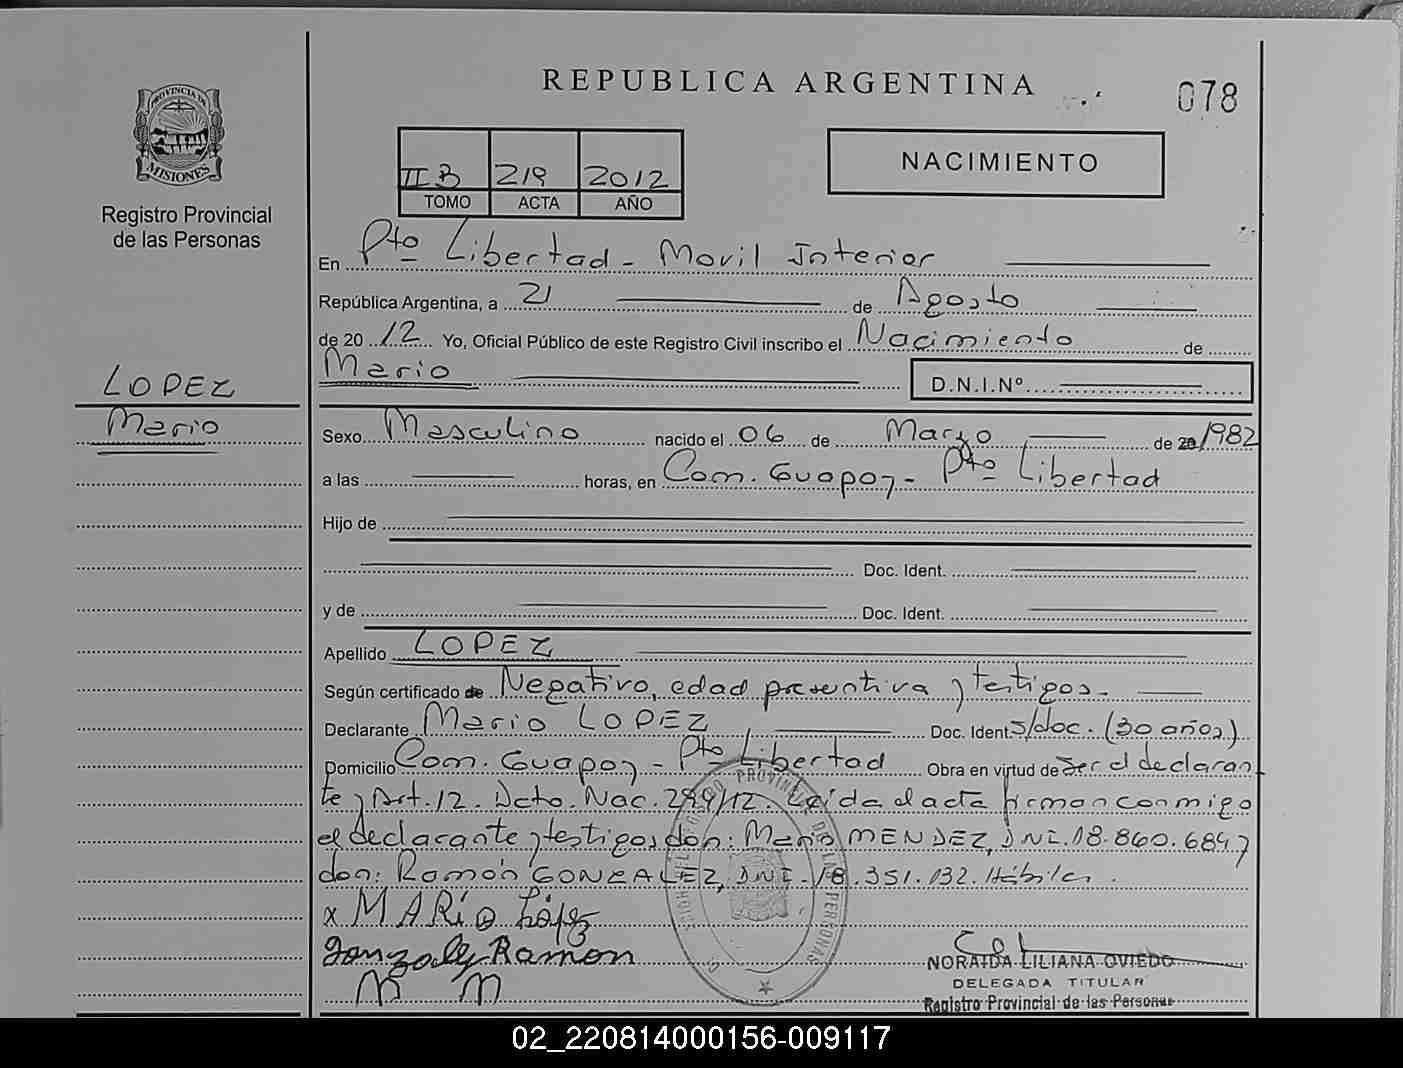 REPUBLICA ARGENTINA
078
PROVINCIA DE
MISIONES
Registro Provincial
de las Personas
II B 219 2012
TOMO ACTA AÑO
NACIMIENTO
LOPEZ
Mario
En Pto Libertad - Movil Interior
República Argentina, a 21 de Agosto
de 20 12 Yo, Oficial Público de este Registro Civil inscribo el Nacimiento de
Mario D.N.I.Nº
Sexo Masculino nacido el 06 de Marzo de 20 1982
a las horas, en Com. Guapoy - Pto Libertad
Hijo de
Doc. Ident.
y de Doc. Ident.
Apellido LOPEZ
Según certificado de Negativo, edad presuntiva y testigos.
Declarante Mario LOPEZ Doc. Ident. s/doc. (30 años)
Domicilio Com. Guapoy - Pto Libertad Obra en virtud de ser el declaran
te y Art. 12. Dcto. Nac. 294/12. Leída el acta firman conmigo
el declarante y testigos don: Mario MENDEZ, DNI. 18.860.684 y
don: Ramón GONZALEZ, DNI. 18.351.132. Hábiles.
x MARío López
Gonzalez Ramon
M M
NORAIDA LILIANA OVIEDO
DELEGADA TITULAR
Registro Provincial de las Personas
02_220814000156-009117